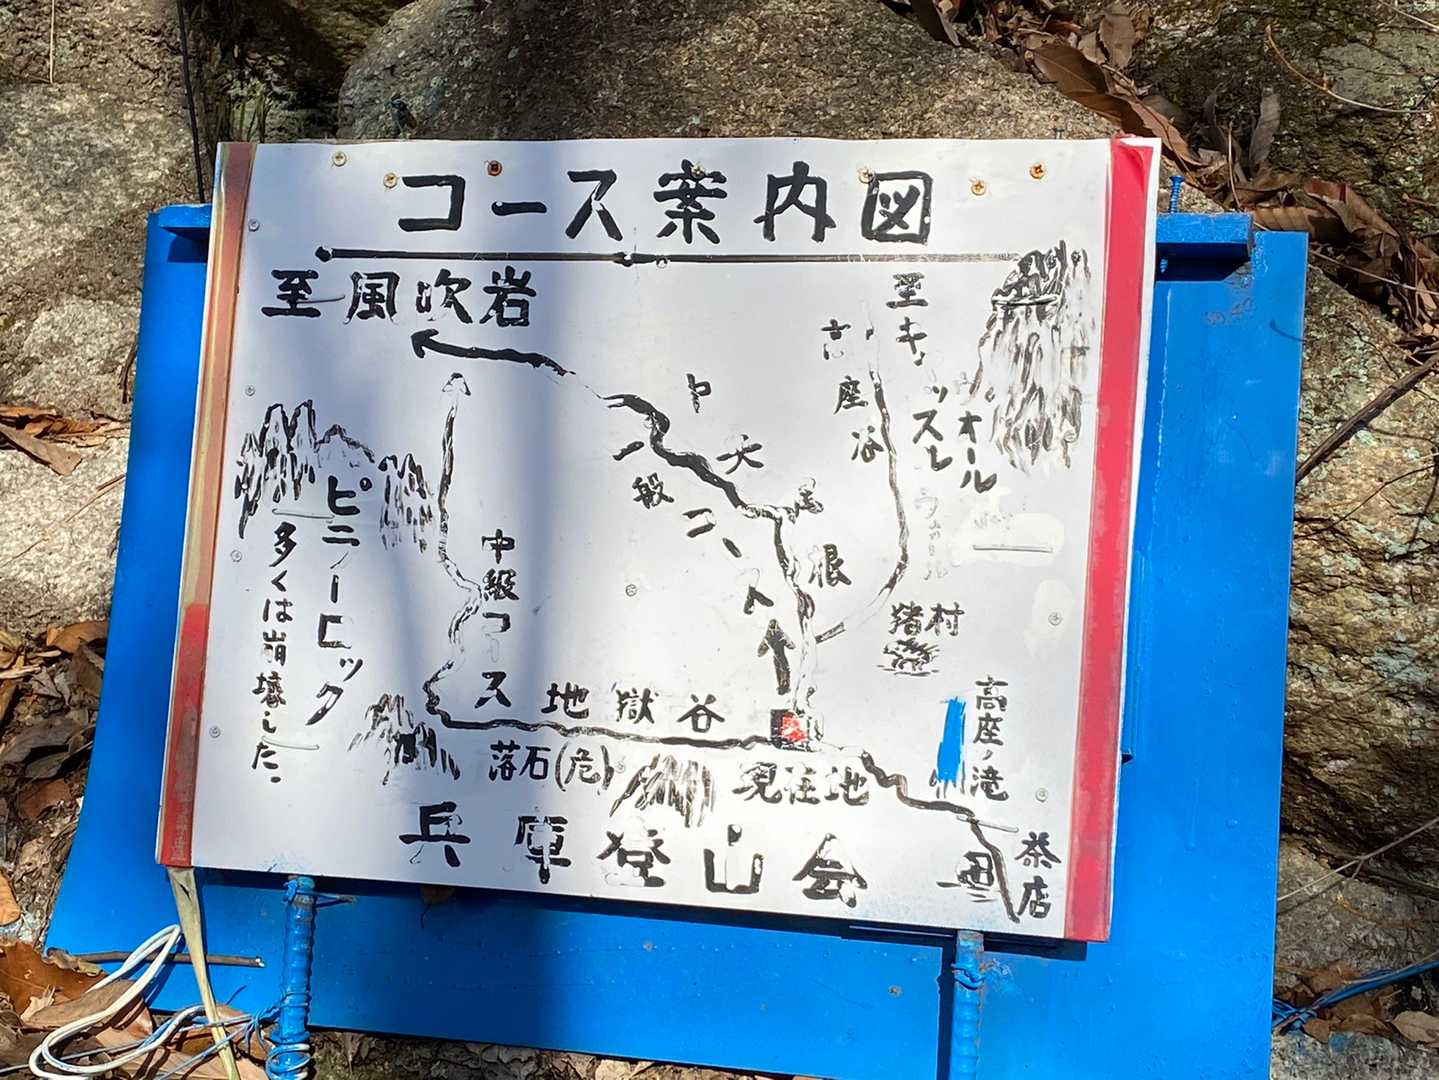 コース案内図
至風吹岩
至キャッスル
ウォール
高座谷
中
大
尾
根
一般コース
中級コース
ピナーロック
多くは崩壊した。
猪村
地獄谷
落石(危)
現在地
高座ノ滝
茶店
兵庫登山会